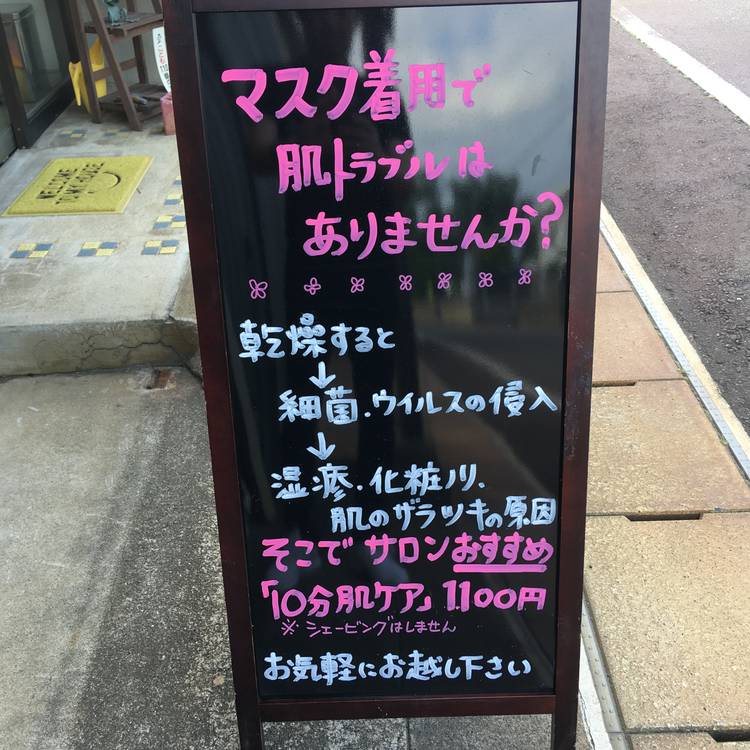 マスク着用で
肌トラブルは
ありませんか?
乾燥すると
↓
細菌.ウイルスの侵入
↓
湿疹.化粧ノリ.
肌のザラツキの原因
そこで サロンおすすめ
「10分肌ケア」1100円
※シェービングはしません
お気軽にお越し下さい
WELCOME
TO MY HOUSE